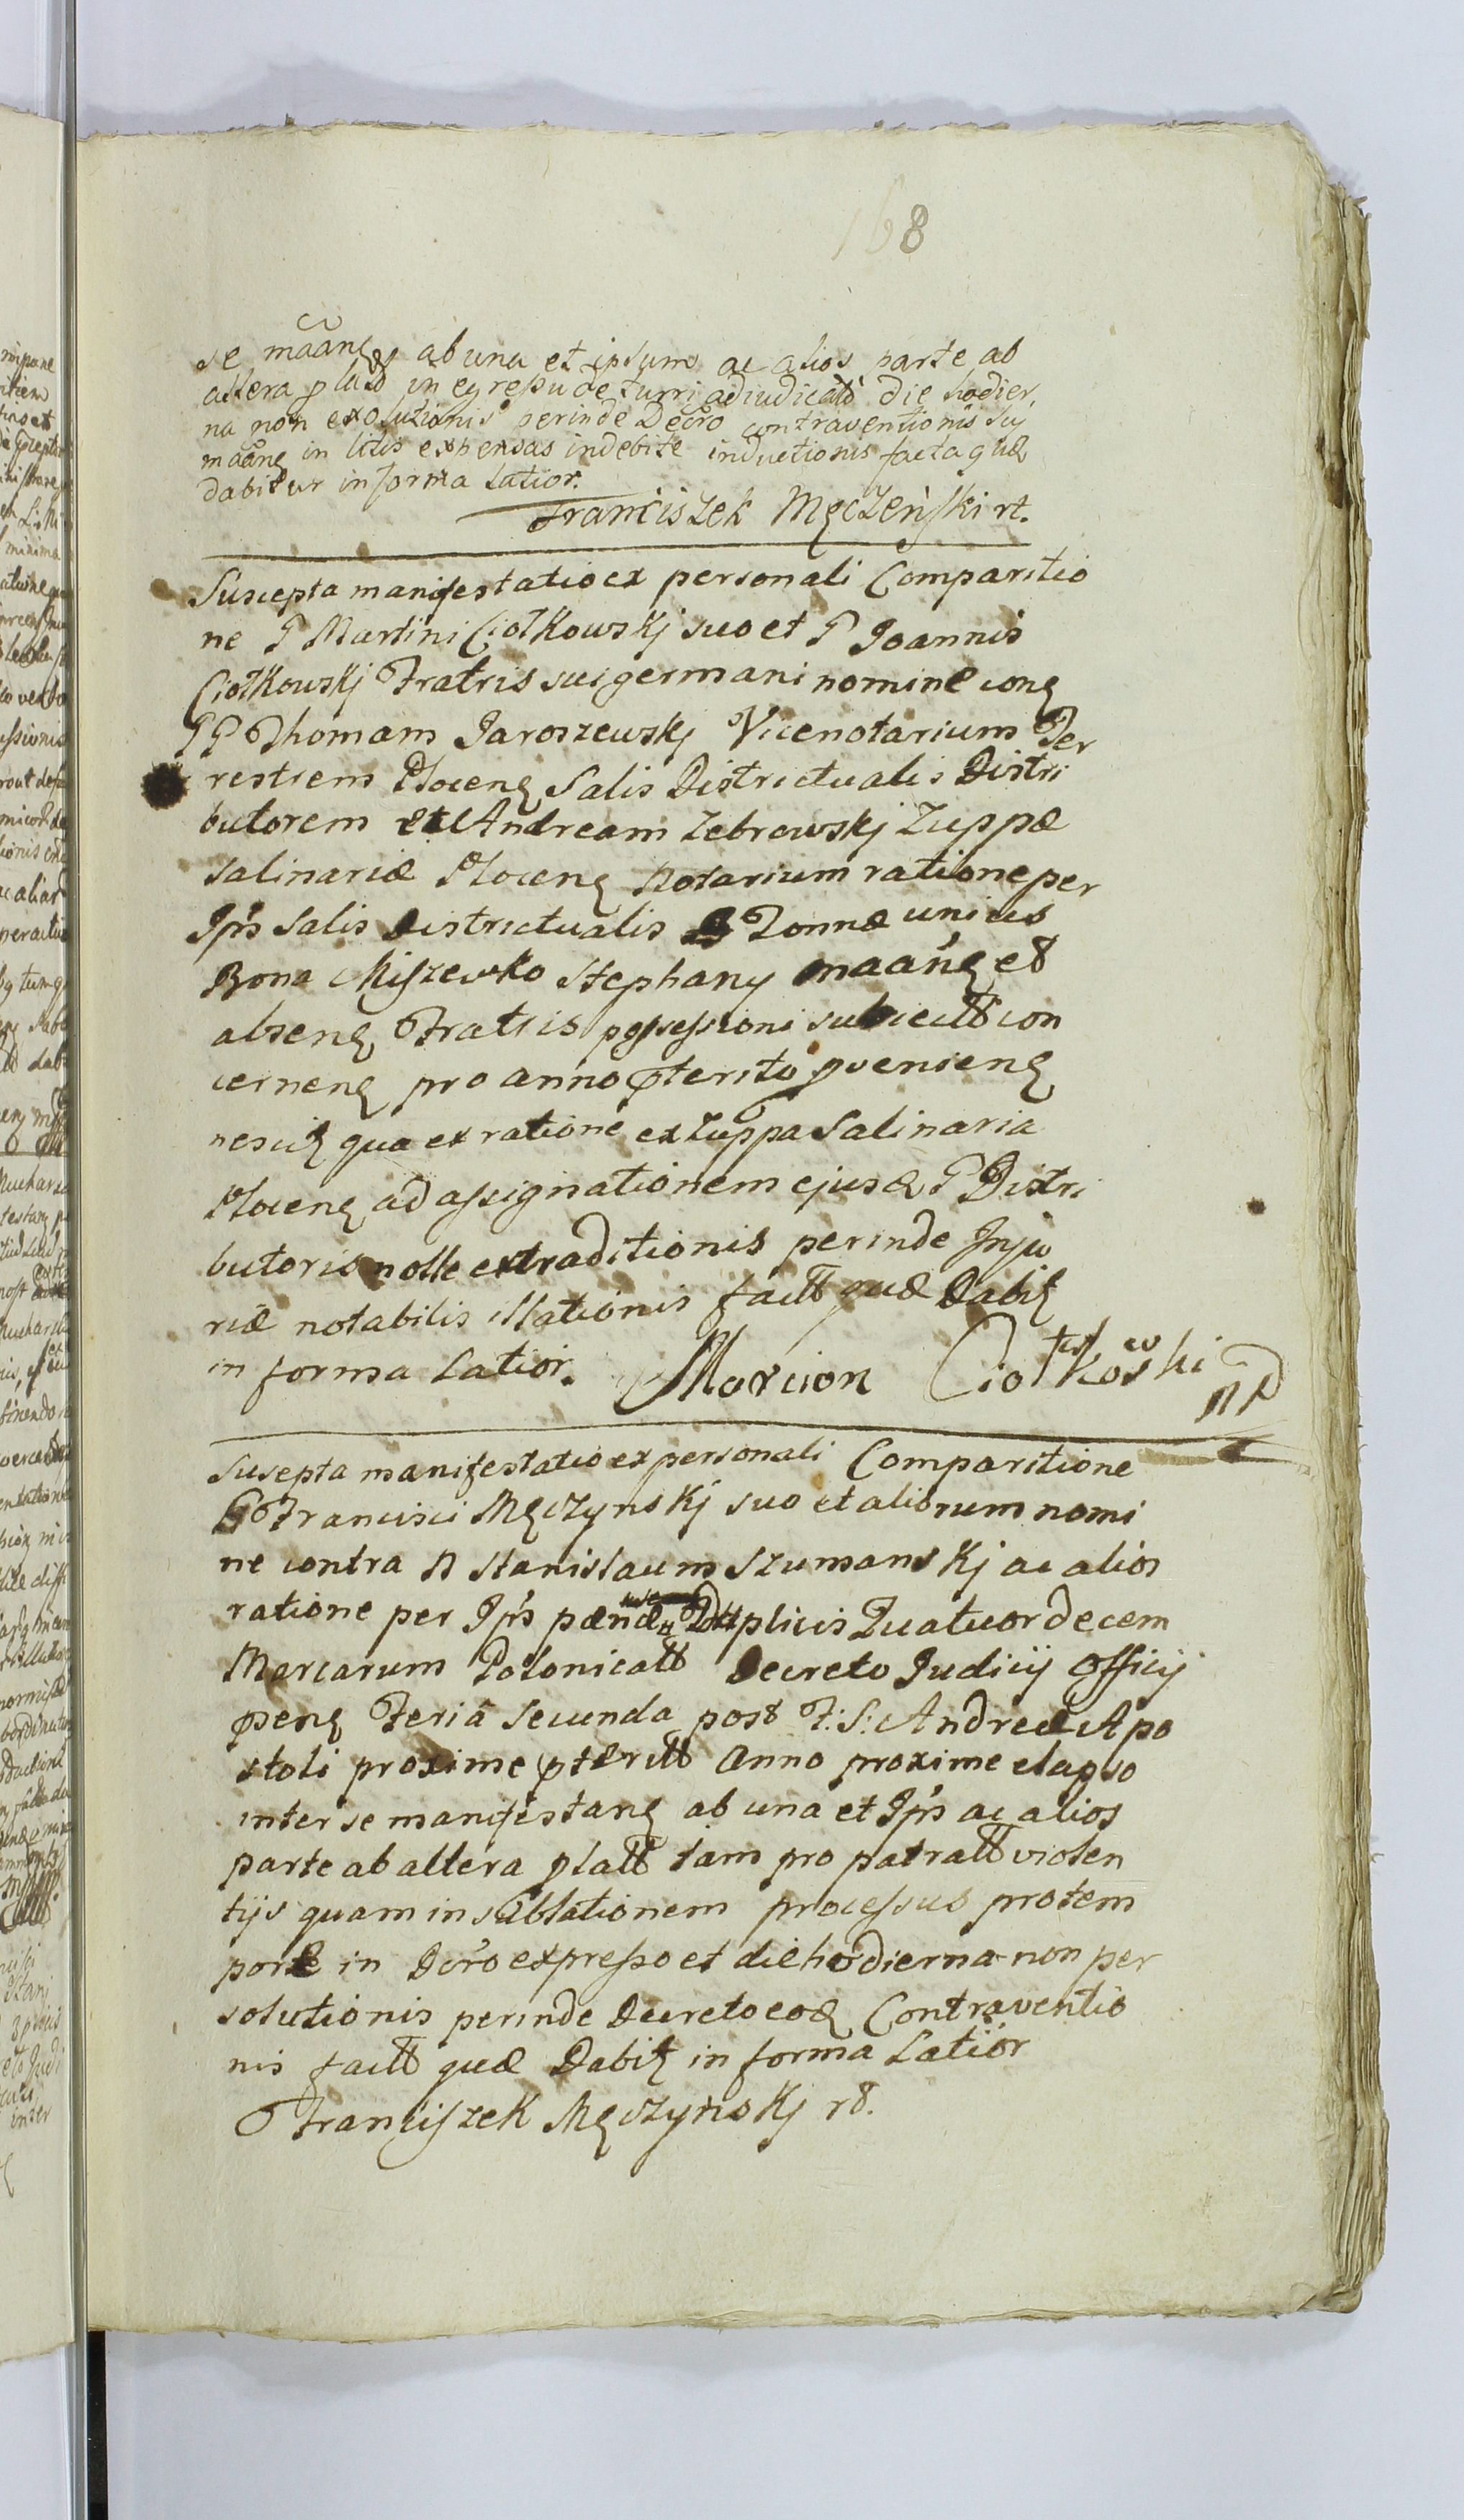 168
se maang ab una et ipsum ac alios parte ab
altera plato in egressu de turri adiudicato die hodier
na non exolutionis perinde Decro contraventionis sui
maang in litis expensas indebite inductionis facta quæ
dabitur in forma Latior.
Franciszek Męczeński rt.
Suscepta manifestatio ex personali Comparitio
ne G Martini Ciołkowskj suo et G Joannis
Ciołkowskj Fratris sui germani nomine cong
GG Thomam Jaroszewskj Vicenotarium Ter
restrem Ploceng Salis Districtualis Distri
butorem et Andream Zebrowskj Zuppæ
salinariæ Ploceng Notarium ratione per
Ips Salis Districtualis Tonnæ unius
Bona Miszewko Stephany maang et
abseng Fratris possessioni subiectt con
cerneng pro anno pterito pvenieng
nescit qua ex ratione ex Zuppa Salinaria
Ploceng ad assignationem ejusd G Distri
butoris nolle extraditionis perinde Inju
riæ notabilis illationis factt quæ Dabit
in forma Latior. Marcion Ciołkoski
mp
Suscepta manifestatio ex personali Comparitione
G Francisci Męczynskj suo et aliorum nomi
ne contra N Stanislaum Szumanskj ac alios
ratione per Ips pænæ Duplicis Quatuordecem
Marcarum Polonicatt Decreto Judicij Officij
pseng Feria secunda post F: S: Andreæ Apo
stoli proxime pteritt Anno proxime elapso
inter se manifestang ab una et Ips ac alios
parte ab altera platt tam pro patratt violen
tijs quam in sublationem processus pro tem
pore in Dcro expresso et die hodierna non per
solutionis perinde Decreto eod Contraventio
nis factt quæ Dabit in forma Latior
Franciszek Męczynskj rt.